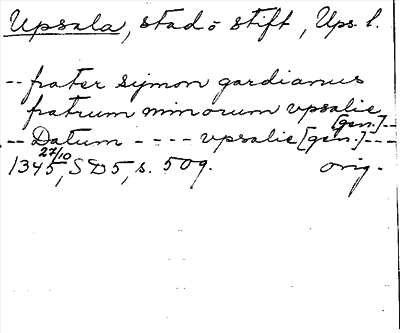 Upsala, stad o stift, Ups. l.
-- frater symon gardianus
fratrum minorum vpsalie
[gen.]--
-- Datum ---- vpsalie [gen.]---
27/10
1345, SD5, s. 509. orig.